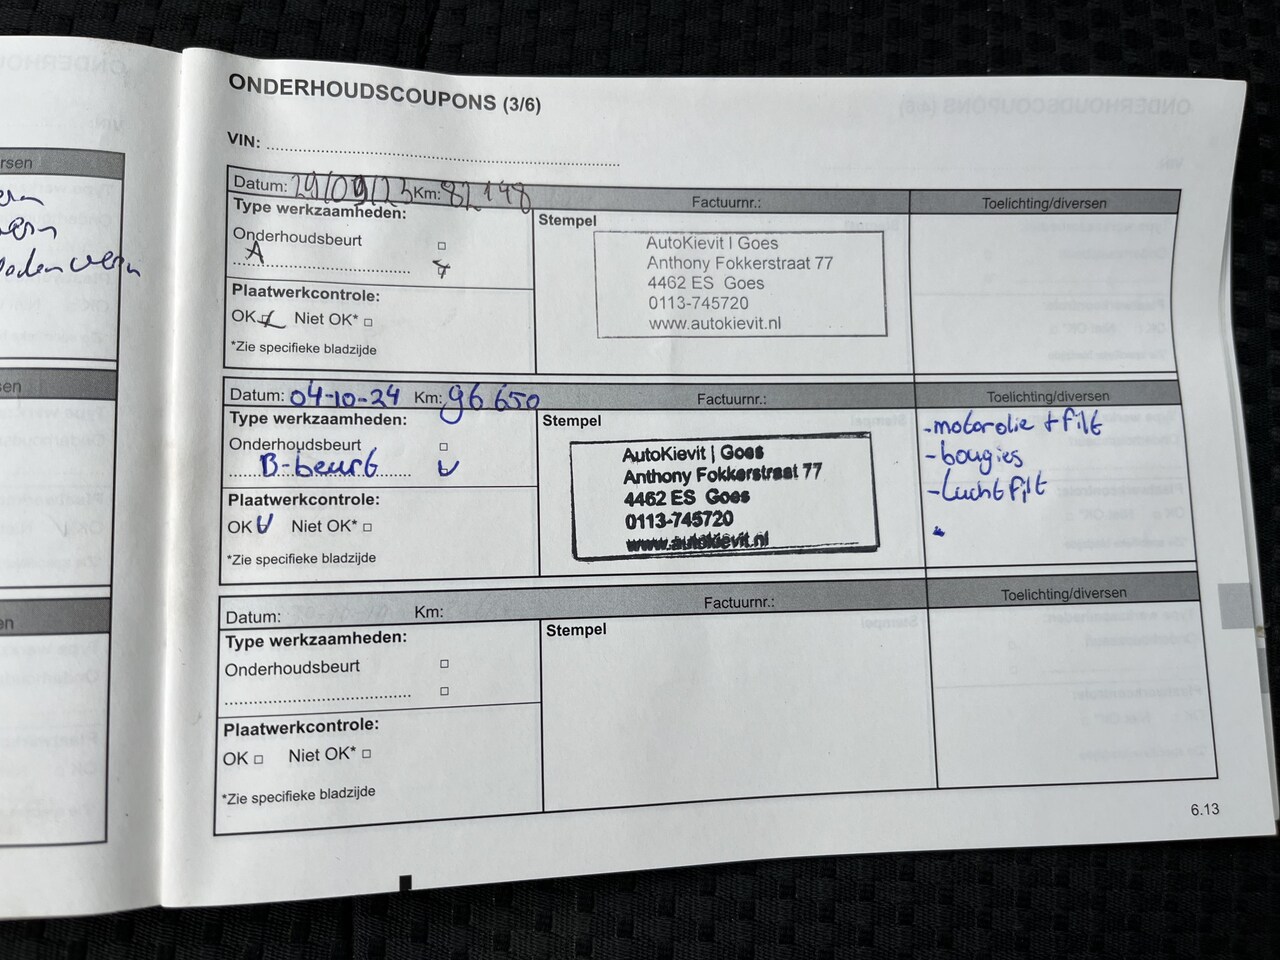 ONDERHOUDSCOUPONS (3/6)
VIN:
Datum: 29/09/23 Km: 82148
Factuurnr.:
Toelichting/diversen
Type werkzaamheden:
Onderhoudsbeurt
A
Plaatwerkcontrole:
OK Niet OK*
*Zie specifieke bladzijde
Stempel
AutoKievit | Goes
Anthony Fokkerstraat 77
4462 ES Goes
0113-745720
www.autokievit.nl
Datum: 04-10-24 Km: 96.650
Factuurnr.:
Toelichting/diversen
Type werkzaamheden:
Onderhoudsbeurt
B-beurt
Plaatwerkcontrole:
OK Niet OK*
*Zie specifieke bladzijde
Stempel
AutoKievit | Goes
Anthony Fokkerstraat 77
4462 ES Goes
0113-745720
www.autokievit.nl
-motorolie + filt
-bougies
-Luchtfilt
Datum: Km:
Factuurnr.:
Toelichting/diversen
Type werkzaamheden:
Onderhoudsbeurt
Plaatwerkcontrole:
OK Niet OK*
*Zie specifieke bladzijde
Stempel
6.13